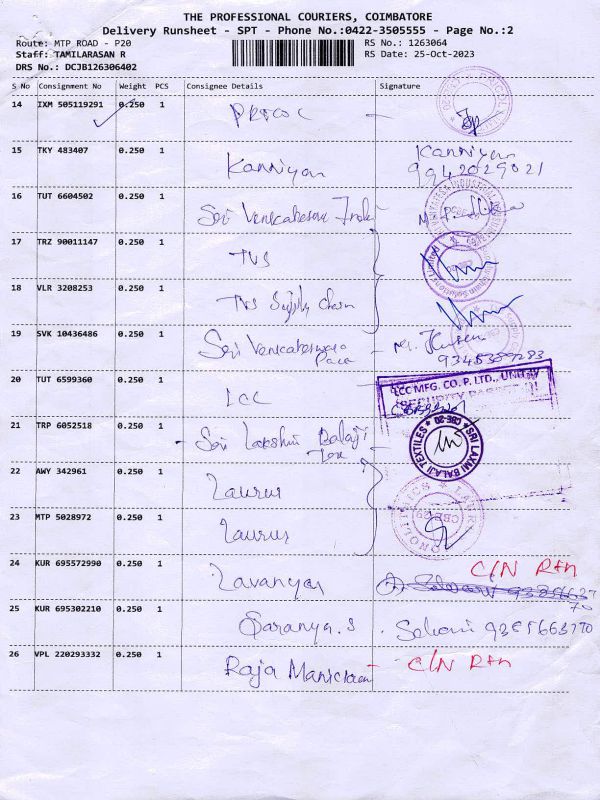 THE PROFESSIONAL COURIERS, COIMBATORE
Delivery Runsheet - SPT - Phone No.:0422-3505555 - Page No.:2
Route: MTP ROAD - P20 RS No.: 1263064
Staff: TAMILARASAN R RS Date: 25-Oct-2023
DRS No.: DCJB126306402
S No Consignment No Weight PCS Consignee Details Signature
14 IXM 505119291 0.250 1
15 TKY 483407 0.250 1 Kanniyan Kanniyan
9942029021
16 TUT 6604502 0.250 1 Sri Venkateswara
17 TRZ 90011147 0.250 1 TVS
18 VLR 3208253 0.250 1 TVS Supply Chain
19 SVK 10436486 0.250 1 Sri Venkateswara
20 TUT 6599360 0.250 1 LCC
LCC MFG. CO. P. LTD., UNIT
21 TRP 6052518 0.250 1 Sri Lakshmi Balaji
Tex
SRI LAXMI BALAJI TEXTILES * CBE-20 *
22 AWY 342961 0.250 1 Laurus
23 MTP 5028972 0.250 1 Laurus
24 KUR 695572990 0.250 1 Lavanya C/N Rtn
25 KUR 695302210 0.250 1 Saranya.S
26 VPL 220293332 0.250 1 Raja Manickam - C/N Rtn